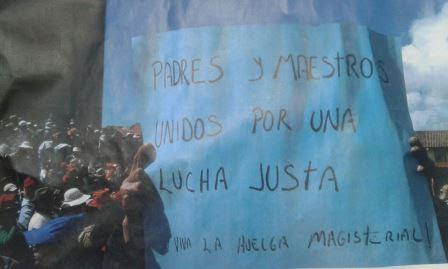 PADRES Y MAESTROS
UNIDOS POR UNA
LUCHA JUSTA
VIVA LA HUELGA MAGISTERIAL!